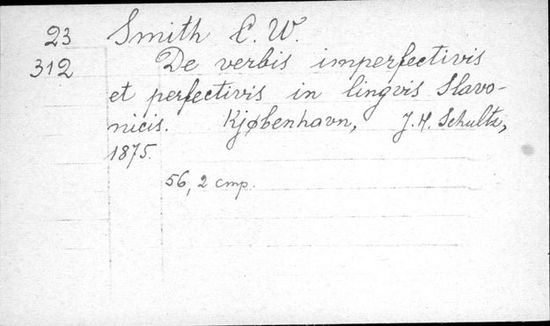 23 Smith C. W.
312 De verbis imperfectivis
et perfectivis in lingvis Slavo-
nicis. Kjøbenhavn, J. H. Schultz,
1875.
56, 2 стр.